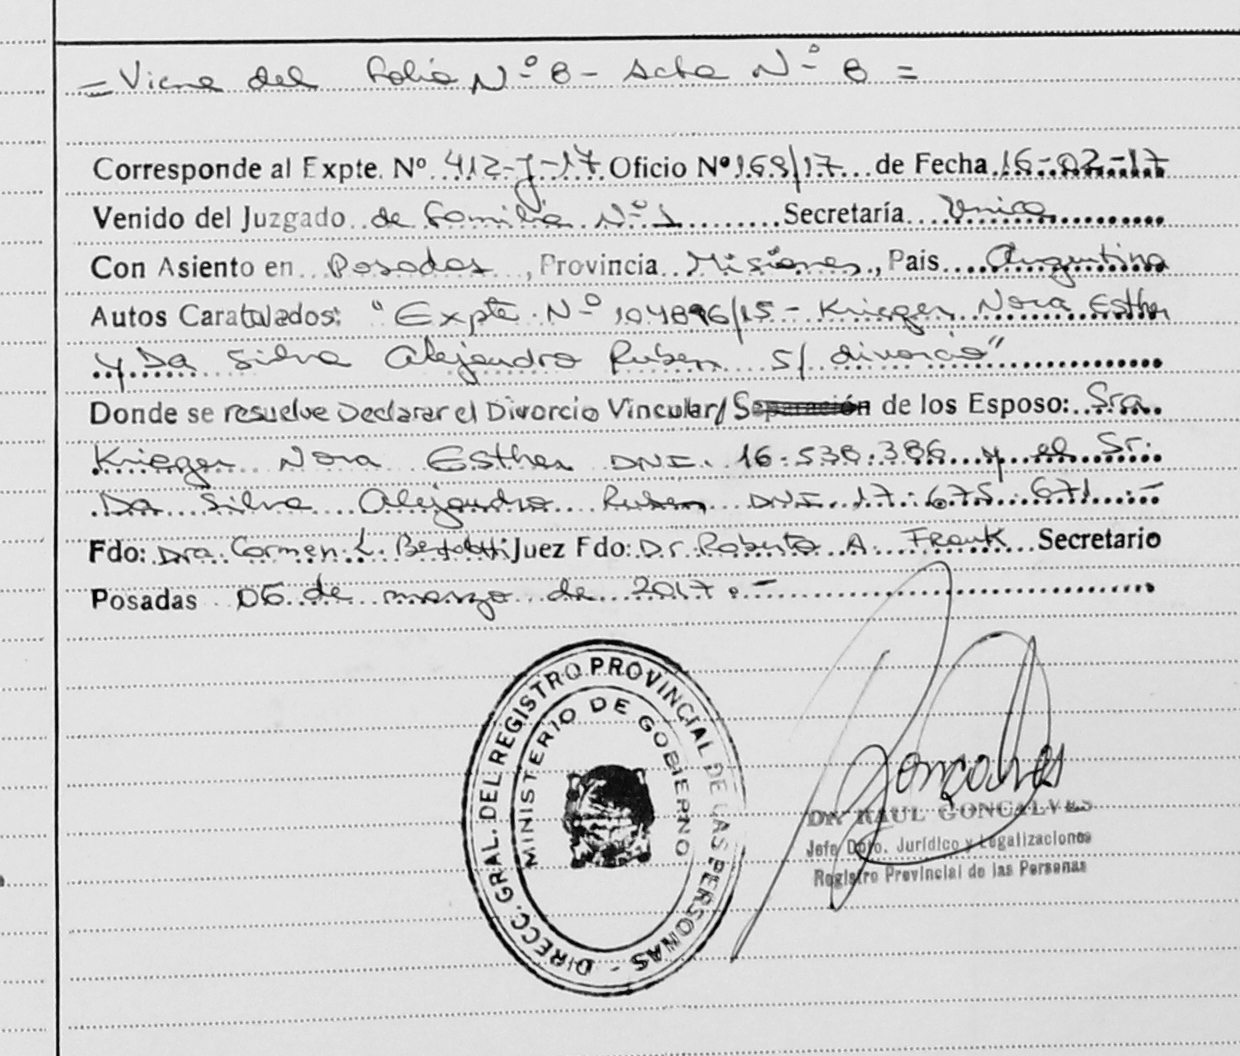 = Viene del folio Nº 8 - Acta Nº 8 =
Corresponde al Expte. Nº 412-J-17 Oficio Nº 169/17 de Fecha 16-02-17
Venido del Juzgado de Familia Nº 1 Secretaría Unica
Con Asiento en Posadas, Provincia Misiones, Pais Argentina
Autos Caratulados: "Expte. Nº 104896/15 - Krieger Nora Esther
y Da Silva Alejandro Ruben s/ divorcio"
Donde se resuelve Declarar el Divorcio Vincular/ Separación de los Esposo: Sra
Krieger Nora Esther DNI. 16.538.386 y el Sr.
Da Silva Alejandro Ruben DNI. 17.675.671.-
Fdo: Dra. Carmen L. Juez Fdo: Dr. Roberto A. Frank Secretario
Posadas 06 de marzo de 2017.-
DIRECC. GRAL. DEL REGISTRO PROVINCIAL DE LAS PERSONAS -
MINISTERIO DE GOBIERNO
Goncalves
Dr. RAUL GONCALVES
Jefe Dpto. Jurídico y Legalizaciones
Registro Provincial de las Personas